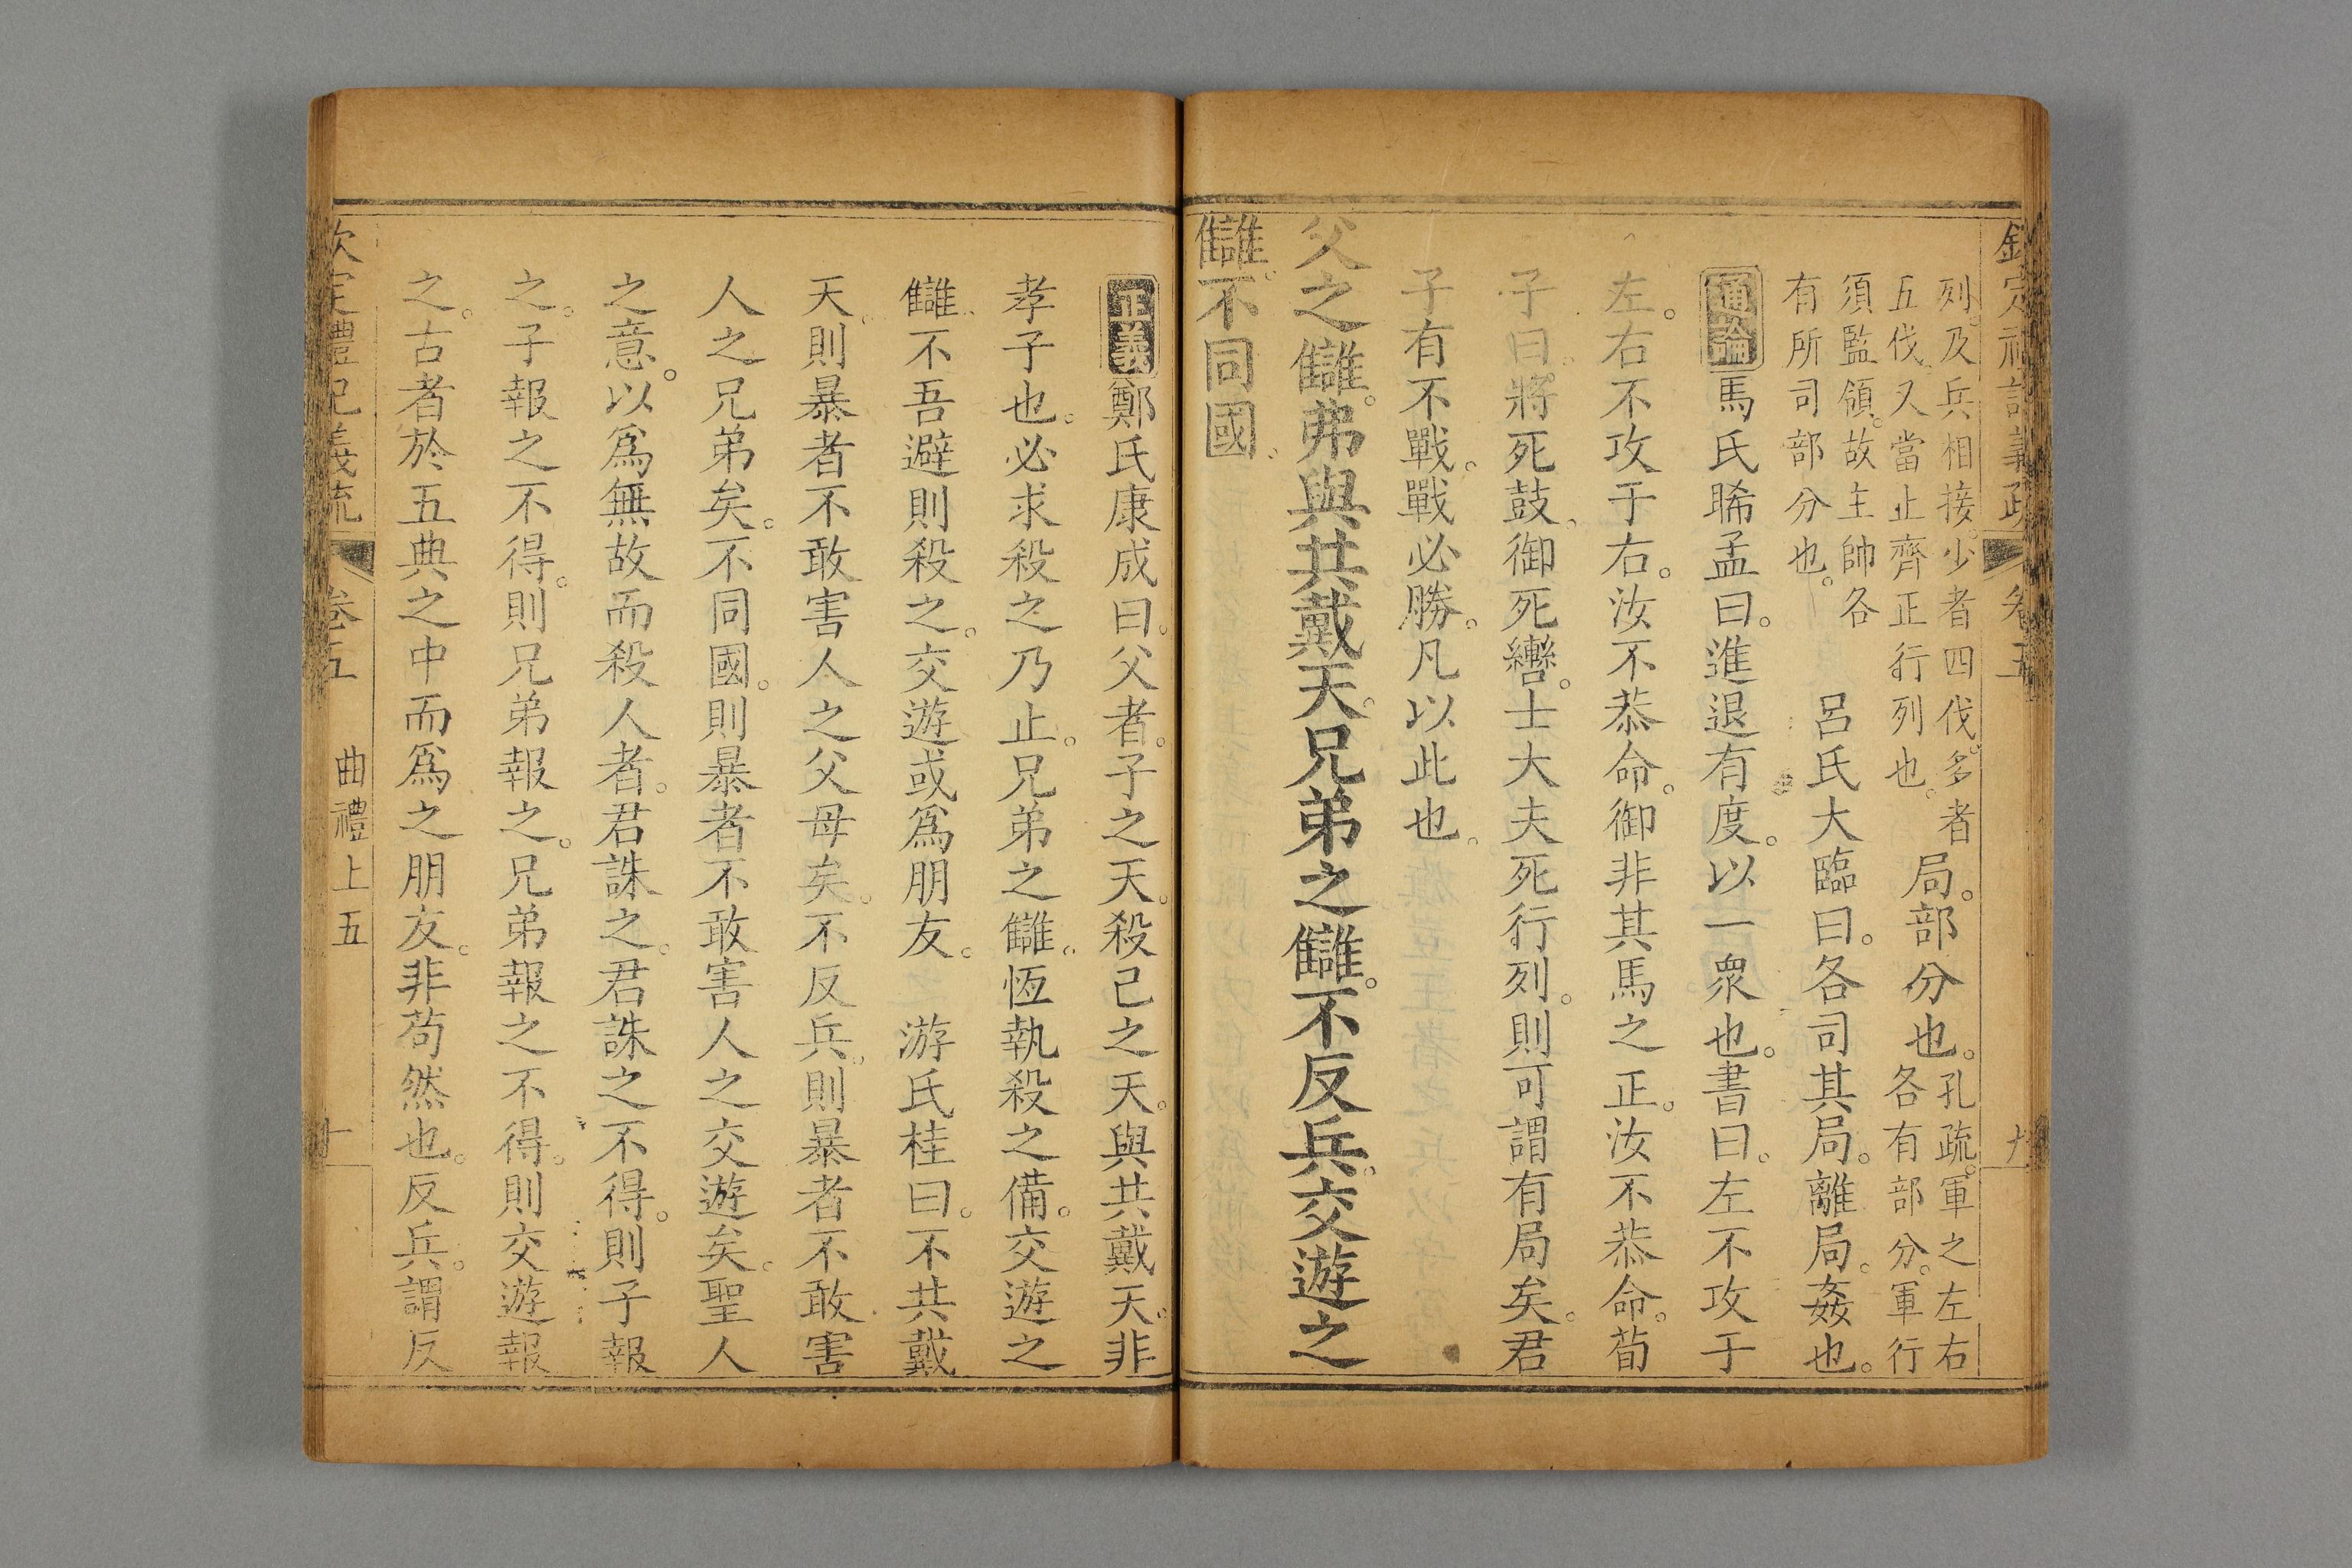 欽定禮記義疏 卷五 九
列。及兵相接。少者四伐。多者
五伐。又當止齊正行列也。
局。部分也。
孔疏。軍之左右
各有部分。軍行
須監領。故主帥各
有所司部分也。
呂氏大臨曰。各司其局。離局。姦也。
通論馬氏睎孟曰。進退有度。以一衆也。書曰。左不攻于
左。右不攻于右。汝不恭命。御非其馬之正。汝不恭命。荀
子曰。將死鼓。御死轡。士大夫死行列。則可謂有局矣。君
子有不戰。戰必勝。凡以此也。
父之讎。弗與共戴天。兄弟之讎。不反兵。交遊之
讎。不同國。
正義鄭氏康成曰。父者。子之天。殺己之天。與共戴天。非
孝子也。必求殺之乃止。兄弟之讎。恆執殺之備。交遊之
讎。不吾避則殺之。交遊或爲朋友。 游氏桂曰。不共戴
天。則暴者不敢害人之父母矣。不反兵。則暴者不敢害
人之兄弟矣。不同國。則暴者不敢害人之交遊矣。聖人
之意。以爲無故而殺人者。君誅之。君誅之不得。則子報
之。子報之不得。則兄弟報之。兄弟報之不得。則交遊報
之。古者於五典之中而爲之朋友。非苟然也。反兵。謂反
欽定禮記義疏 卷五 曲禮上五 十